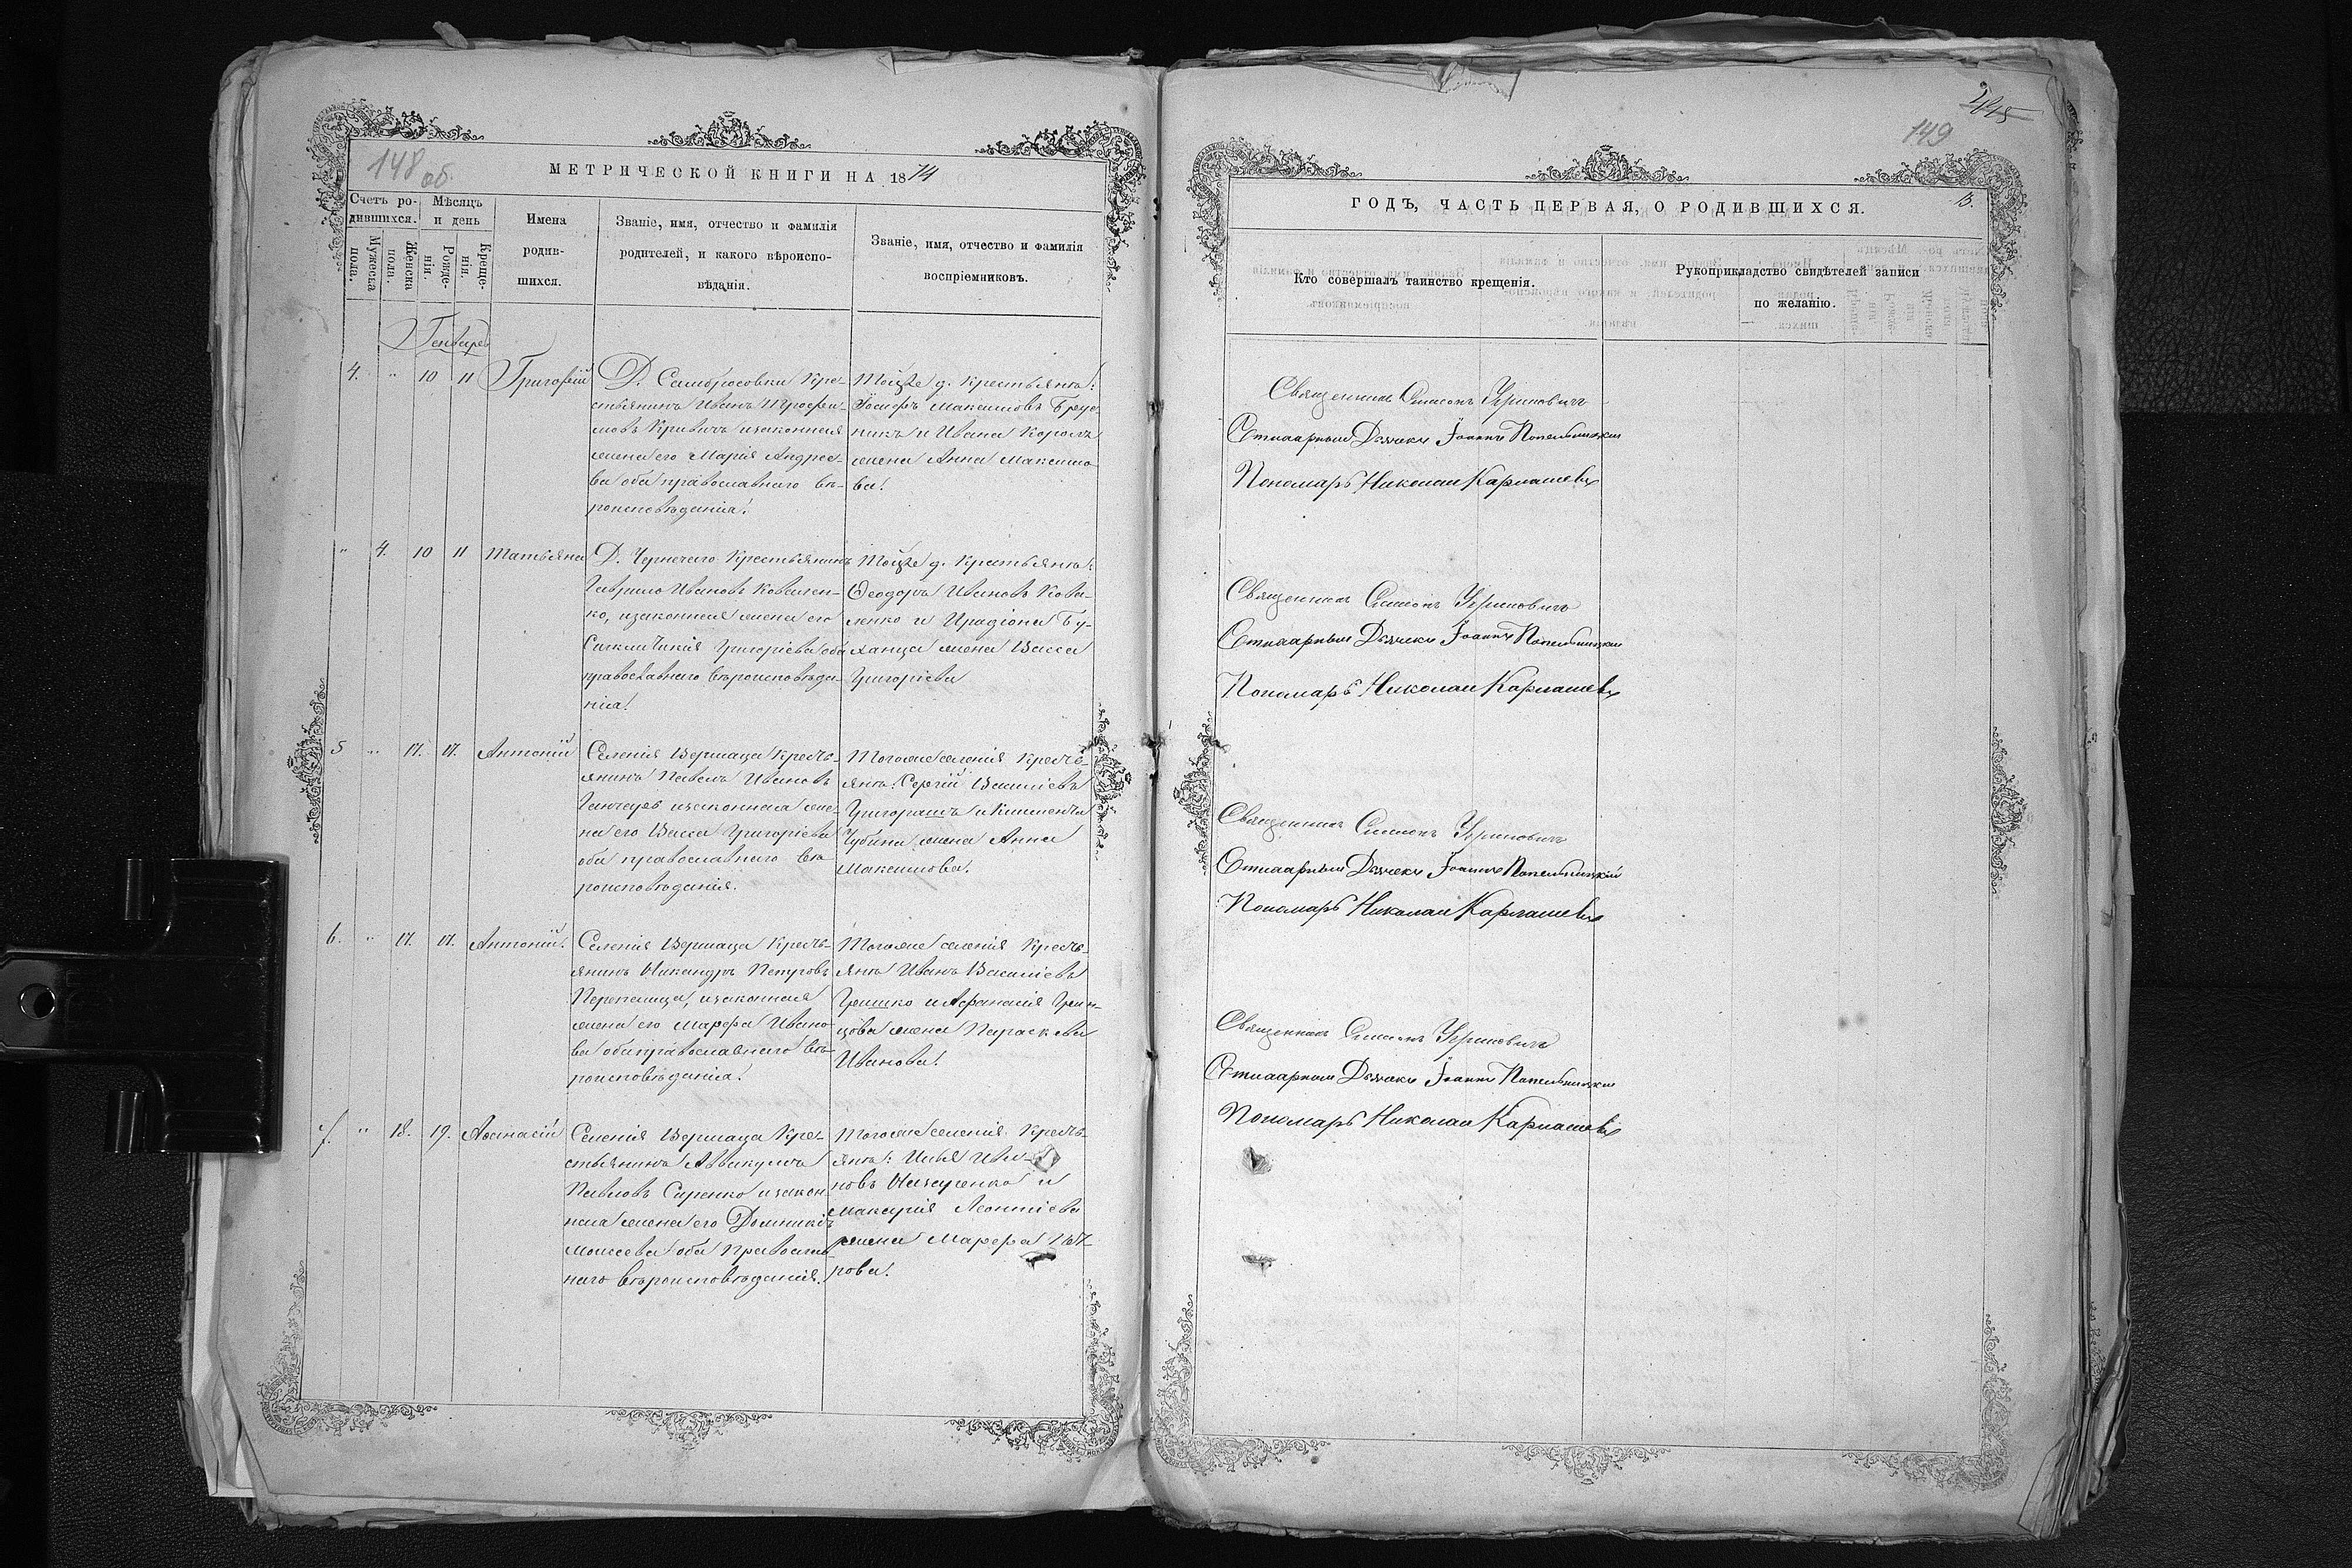 148 об.
МЕТРИЧЕСКОЙ КНИГИ НА 1874
Счетъ ро-
дившихся.
Мѣсяцъ
и день
Мужеска
пола.
Женска
пола.
Рожде-
нія.
Креще-
нія.
Имена
родив-
шихся.
Званіе, имя, отчество и фамилія
родителей, и какого вѣроиспо-
вѣданія.
Званіе, имя, отчество и фамилія
воспріемниковъ.
Генварь
4. " 10 11 Григорій
Д. Самбросовки Кре-
стьянинъ Иванъ Трофи-
мовъ Кривичъ изаконная
жена его Марія Андрее-
ва оба православнаго вѣ-
роисповѣданія.
Тойже д. Крестьянъ:
Іосифъ Максимовъ
и Ивана Король
жена Анна Максимо-
ва.
" 4. 10 11 Татьяна
Д. Чернечаго Крестьянинъ
Гаврило Ивановъ Ковален-
ко, изаконная жена его
Григоріева оба
православнаго вѣроисповѣда-
нія.
Тойже д. Крестьянъ:
Ѳеодоръ Ивановъ Кова-
ленко и Иродіона Бу-
ханца жена Васса
Григоріева
5 " 17. 17. Антоній
Селенія Вермаца Кресть-
янинъ Павелъ Ивановъ
Ганчаръ изаконная же-
на его Васса Григоріева
оба православнаго вѣ-
роисповѣданія.
Тогоже селенія Кресть-
янъ: Сергій Василіевъ
Григорашъ и Климента
Чубина жена Анна
Максимова.
6. " 17. 17. Антоній.
Селенія Вермаца Кресть-
янинъ Никандръ Петровъ
Перепелица, изаконная
жена его Марфа Ивано-
ва оба православнаго вѣ-
роисповѣданія.
Тогоже селенія Кресть-
янъ Иванъ Василіевъ
Гришко и Афанасія Грин-
цова жена Параскева
Иванова.
7. " 18. 19. Аѳанасій
Селенія Вермаца Кре-
стьянинъ Аввакумъ
Павловъ Сиренко изакон
ная жена его Домникія
Моисеева оба Православ
наго вѣроисповѣданія.
Тогоже селенія Кресть-
янъ: Илья Ива-
новъ Назаренко и
Макарія Леонтіева
жена Марфа Пет-
рова.
149
13.
ГОДЪ, ЧАСТЬ ПЕРВАЯ, О РОДИВШИХСЯ.
Кто совершалъ таинство крещенія.
Рукоприкладство свидѣтелей записи
по желанію.
Священникъ Симеонъ Угриновичъ
Стихарный Дьячекъ Іоаннъ Попельницкій
Пономарь Николай Карпашевъ
Священникъ Симеонъ Угриновичъ
Стихарный Дьячекъ Іоаннъ Попельницкій
Пономарь Николай Карпашевъ
Священникъ Симеонъ Угриновичъ
Стихарный Дьячекъ Іоаннъ Попельницкій
Пономарь Николай Карпашевъ
Священникъ Симеонъ Угриновичъ
Стихарный Дьячекъ Іоаннъ Попельницкій
Пономарь Николай Карпашевъ